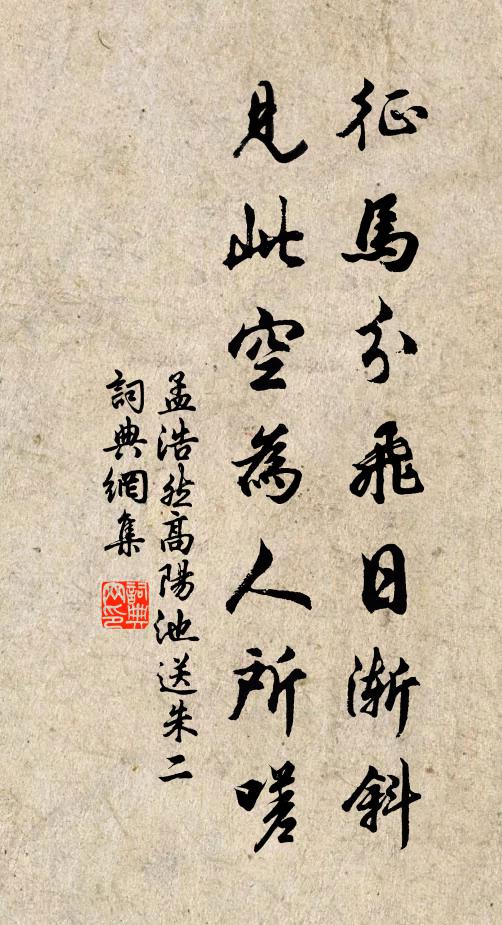 征馬分飛日漸斜
見此空為人所嗟
孟浩然高陽池送朱二
詞典網集
詞典
网印